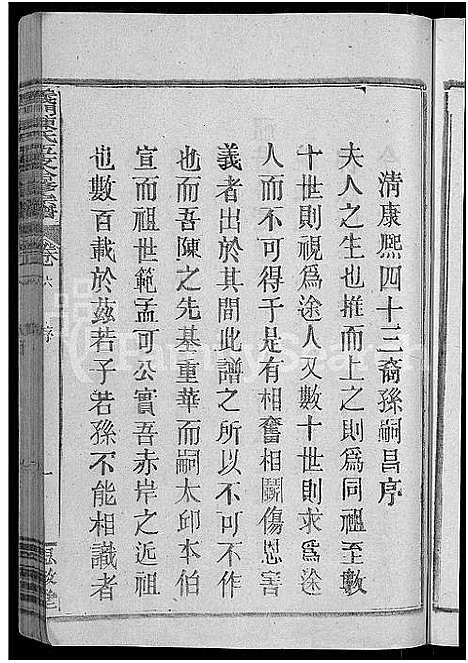 清康熙四十三裔孫嗣昌序
夫人之生也推而上之則爲同祖至數
十世則視爲途人又數十世則求爲途
人而不可得于是有相奮相鬭傷恩害
義者出於其間此譜之所以不可不作
也而吾陳之先基重華而嗣太邱本伯
宣而祖世範孟可公實吾赤岸之近祖
也數百載於茲若子若孫不能相識者
義門陳氏
卷六
序
一
FamilySearch